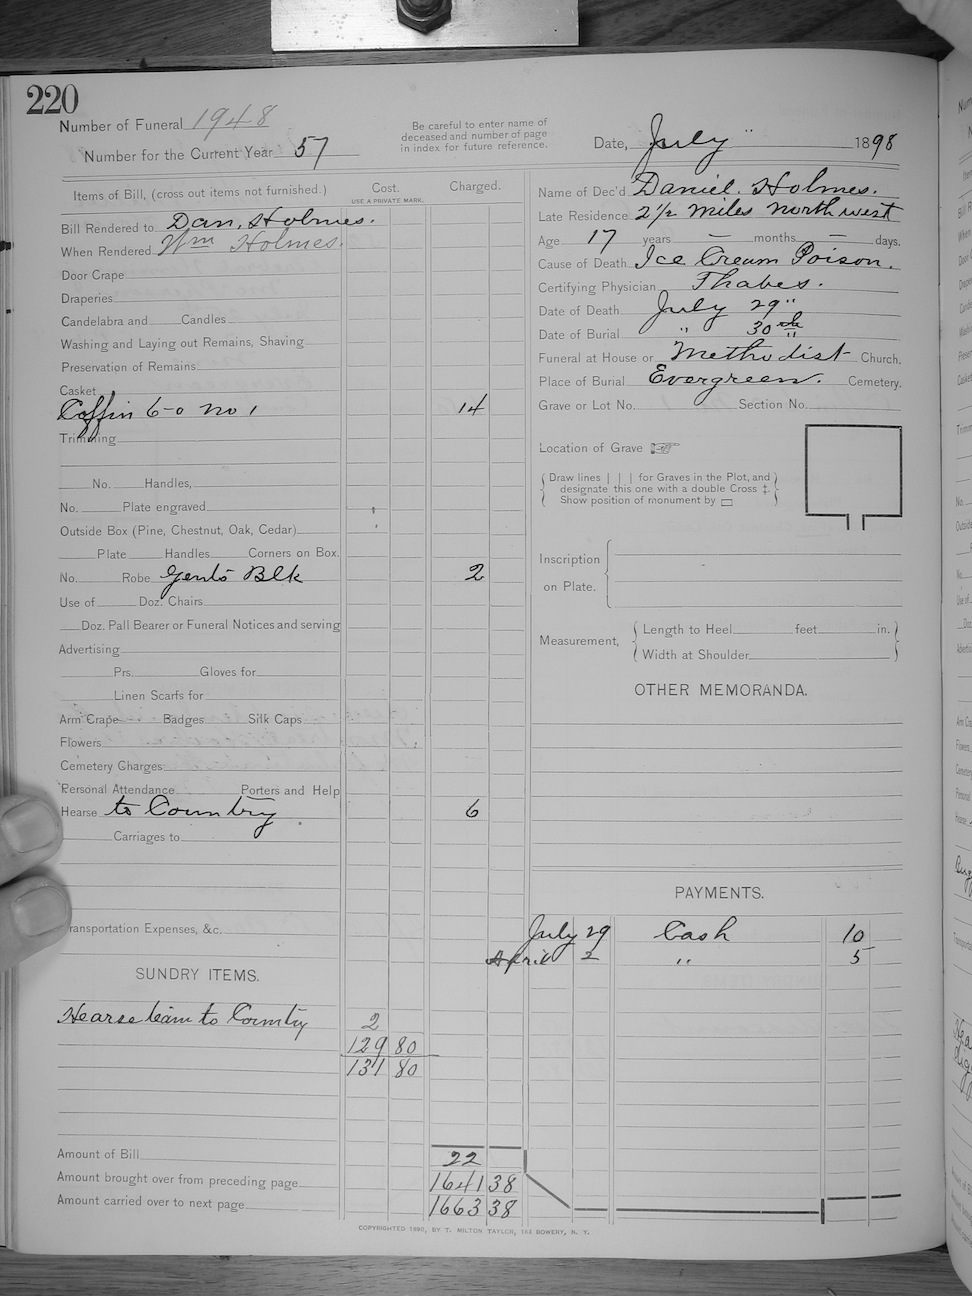 220
Number of Funeral 1948
Number for the Current Year 57
Be careful to enter name of
deceased and number of page
in index for future reference.
Date, July " 1898
Items of Bill, (cross out items not furnished.) Cost. Charged.
USE A PRIVATE MARK.
Bill Rendered to Dan, Holmes.
When Rendered Wm Holmes.
Door Crape
Draperies
Candelabra and Candles
Washing and Laying out Remains, Shaving
Preservation of Remains
Casket
Coffin 6-0 no 1 14
Trimming
No. Handles,
No. Plate engraved
Outside Box (Pine, Chestnut, Oak, Cedar)
Plate Handles Corners on Box.
No. Robe Gents Blk 2
Use of Doz. Chairs
Doz. Pall Bearer or Funeral Notices and serving
Advertising
Prs. Gloves for
Linen Scarfs for
Arm Crape Badges Silk Caps
Flowers
Cemetery Charges
Personal Attendance Porters and Help
Hearse to Country 6
Carriages to
Transportation Expenses, &c.
SUNDRY ITEMS.
Hearse team to Country 2
129 80
131 80
Amount of Bill 22
Amount brought over from preceding page 1641 38
Amount carried over to next page 1663 38
Name of Dec'd Daniel. Holmes.
Late Residence 2 1/2 miles northwest
Age 17 years — months — days.
Cause of Death Ice Cream Poison.
Certifying Physician Thabes.
Date of Death July 29"
Date of Burial " 30th
Funeral at House or Methodist Church.
Place of Burial Evergreen. Cemetery.
Grave or Lot No. Section No.
Location of Grave
Draw lines | | | for Graves in the Plot, and
designate this one with a double Cross ‡.
Show position of monument by ▭
Inscription
on Plate.
Measurement,
Length to Heel feet in.
Width at Shoulder
OTHER MEMORANDA.
PAYMENTS.
July 29 Cash 10
April 2 " 5
COPYRIGHTED 1890, BY T. MILTON TAYLOR, 163 BOWERY, N. Y.